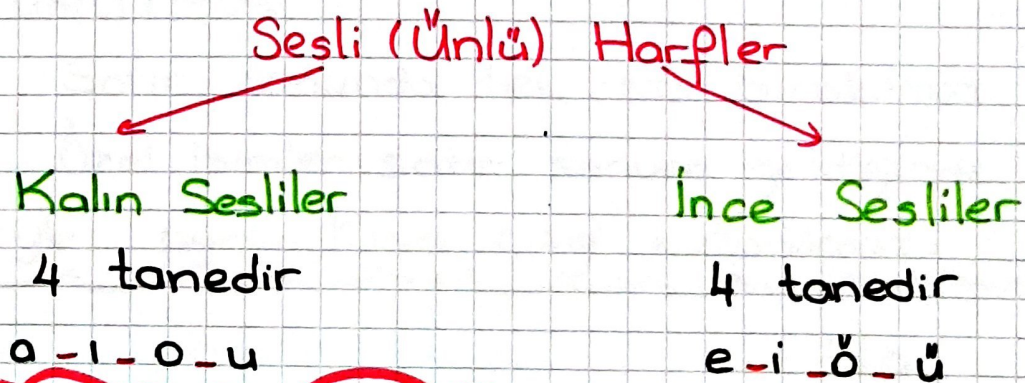 Sesli (Ünlü) Harfler
Kalın Sesliler
4 tanedir
a-ı-o-u
İnce Sesliler
4 tanedir
e-i-ö-ü